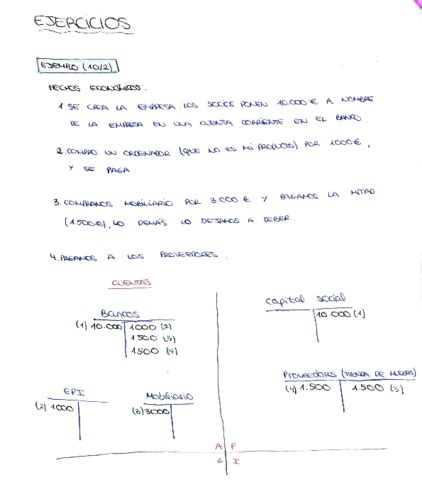 EJERCICIOS
EJEMPLO (10/2)
HECHOS ECONÓMICOS.
1. SE CREA LA EMPRESA LOS SOCIOS PONEN 10.000 € A NOMBRE
DE LA EMPRESA EN UNA CUENTA CORRIENTE EN EL BANCO
2. COMPRO UN ORDENADOR (QUE NO ES MI PRODUCTO) POR 1000 €,
Y SE PAGA
3. COMPRAMOS MOBILIARIO POR 3.000 € Y PAGAMOS LA MITAD
(1500€), LO DEMÁS LO DEJAMOS A DEBER.
4. PAGAMOS A LOS PROVEEDORES.
CUENTAS
Bancos
(1) 10.000 1000 (2)
1500 (3)
1500 (4)
Capital social
10.000 (1)
Proveedores (TIENDA DE MUEBLES)
(4) 1.500 1.500 (3)
EPI
(2) 1000
Mobiliario
(3) 3000
A P
G I